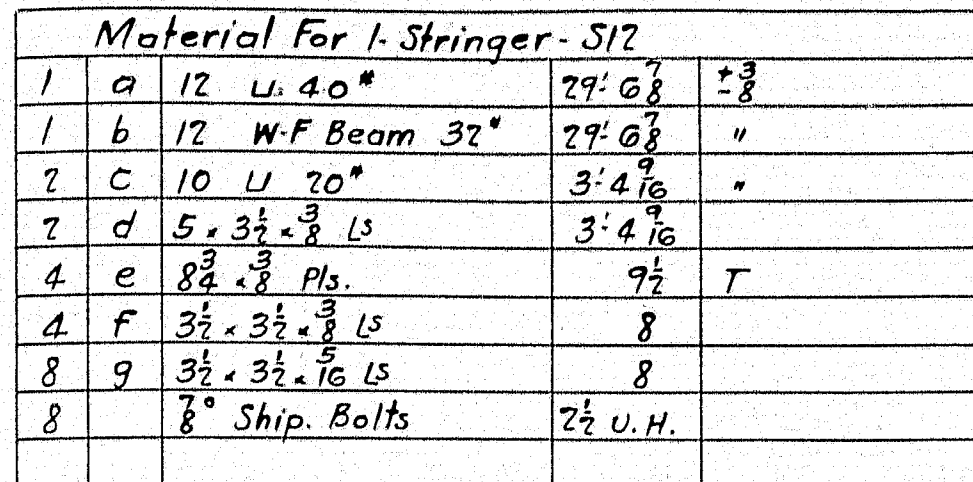 Material For 1- Stringer - S12
1 a 12 ⊔ 40# 29'-6 7/8 ± 3/8
1 b 12 W-F Beam 32# 29'-6 7/8 "
2 c 10 ⊔ 20# 3'-4 9/16 "
2 d 5 x 3 1/2 x 3/8 Ls 3'-4 9/16
4 e 8 3/4 x 3/8 Pls. 9 1/2 T
4 f 3 1/2 x 3 1/2 x 3/8 Ls 8
8 g 3 1/2 x 3 1/2 x 5/16 Ls 8
8 7/8° Ship. Bolts 2 1/2 U.H.